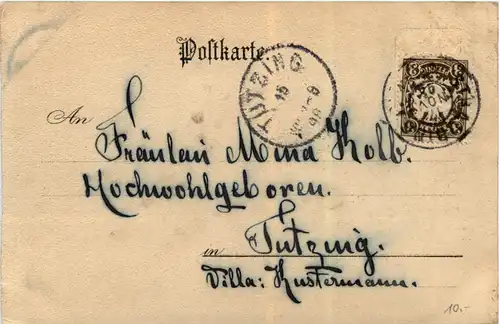 Postkarte
TUTZING
An
Fräulein Mina Kolb.
Hochwohlgeboren.
in Tutzing.
Villa: Kustermann.
10.-